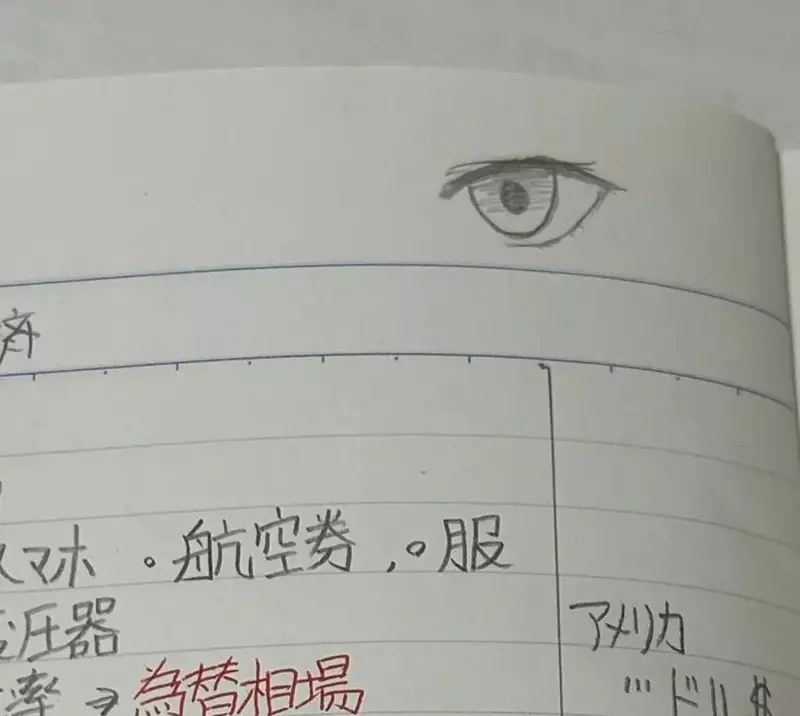 済
スマホ ・航空券 ,。服
変圧器
アメリカ
率 → 為替相場
…ドル $